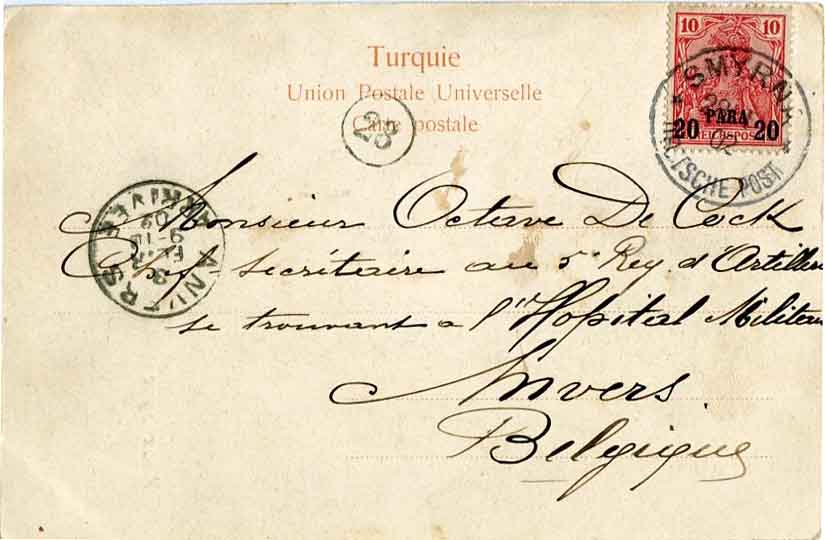 Turquie
Union Postale Universelle
Carte postale
10 10
20 PARA 20
REICHSPOST
SMYRNA
02
DEUTSCHE POST
23
ANVERS
Monsieur Octave De Cock
secrétaire au 5e Reg. d'Artillerie
se trouvant a l'Hopital Militai
Anvers
Belgique